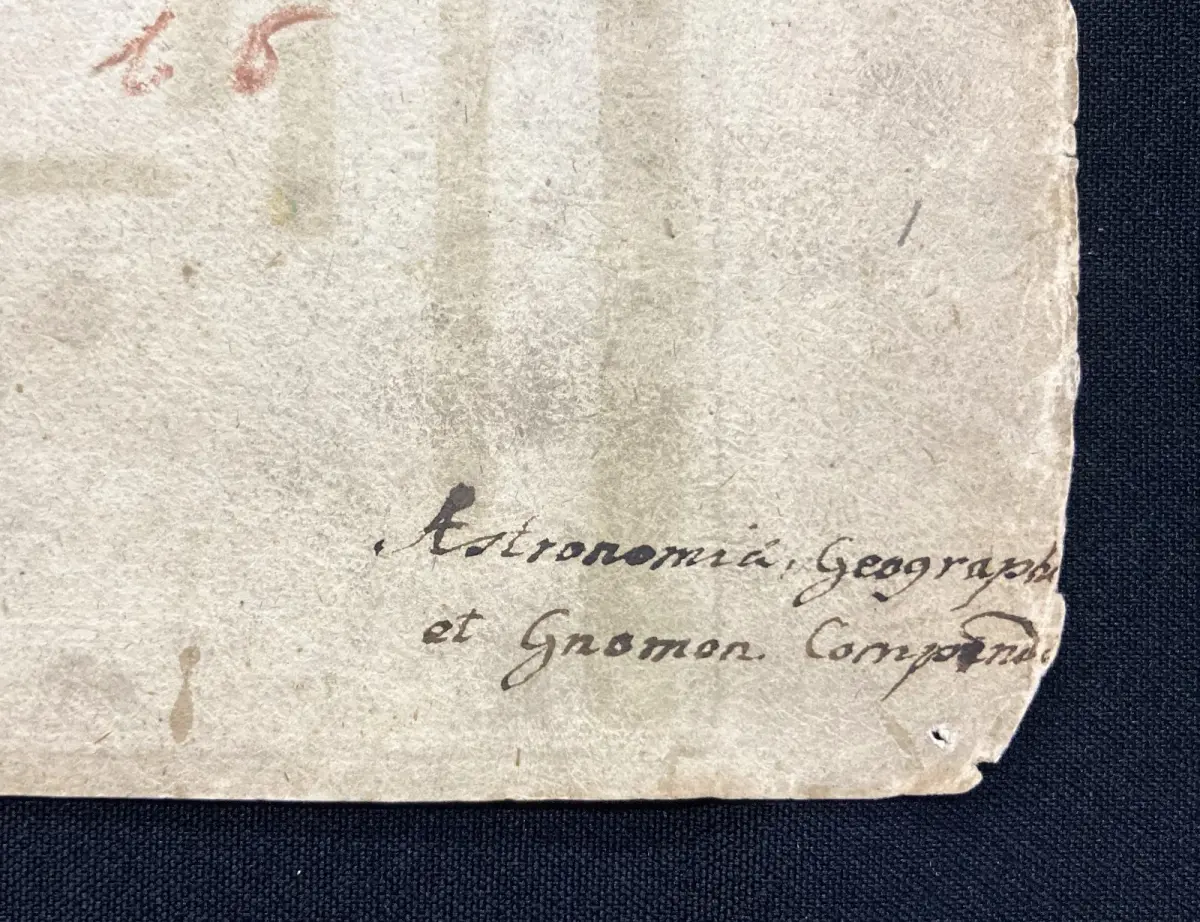 16
Astronomiá, Geographi
et Gnomon. Compendi